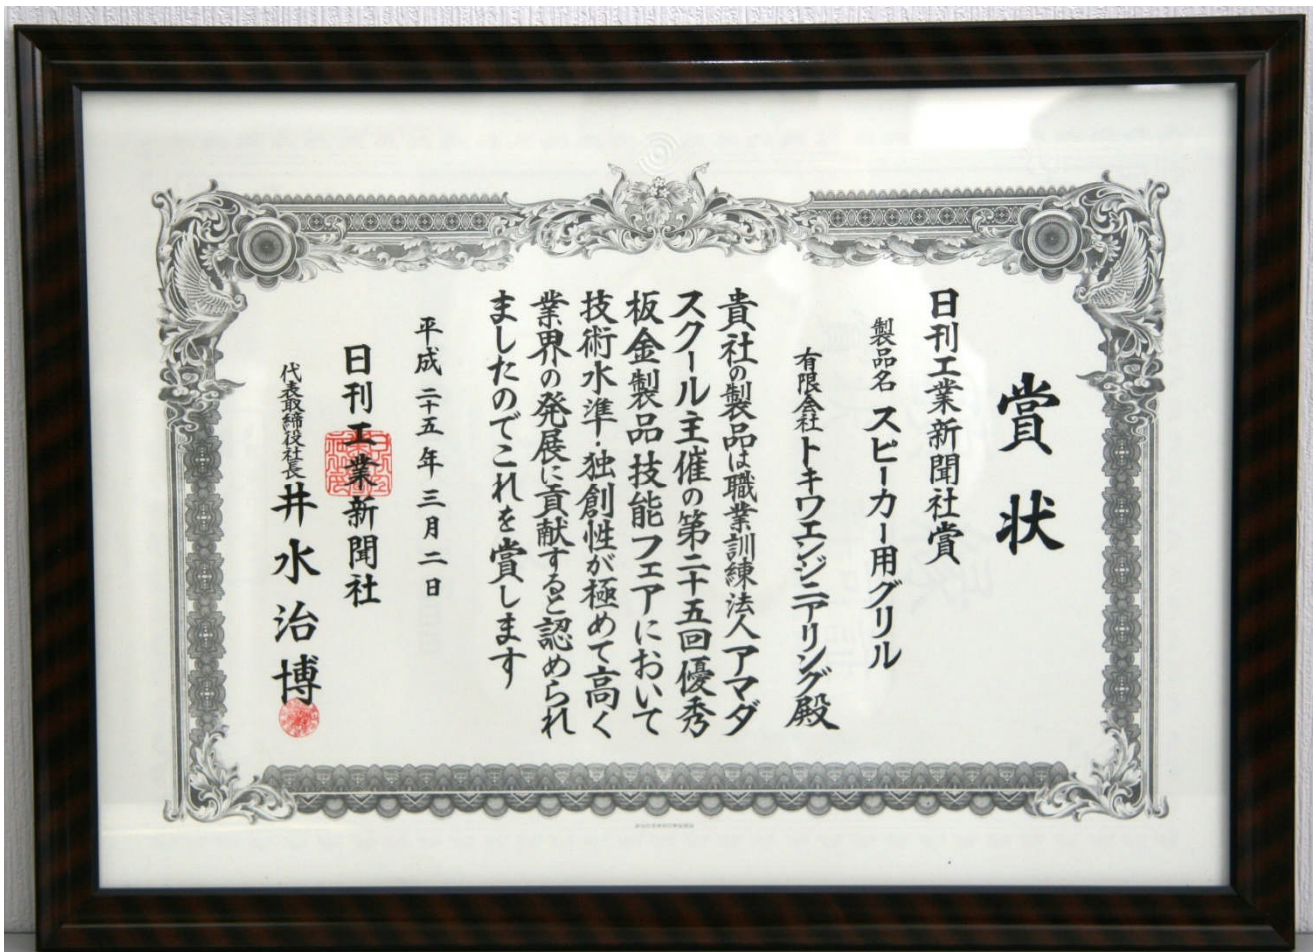 賞状
日刊工業新聞社賞
製品名 スピーカー用グリル
有限会社トキワエンジニアリング殿
貴社の製品は職業訓練法人アマダ
スクール主催の第二十五回優秀
板金製品技能フェアにおいて
技術水準・独創性が極めて高く
業界の発展に貢献すると認められ
ましたのでこれを賞します
平成二十五年三月二日
日刊工業新聞社
代表取締役社長 井水治博